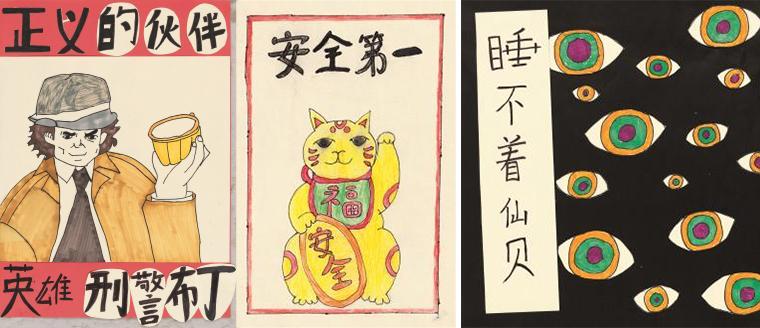 正义的伙伴
英雄 刑警布丁
安全第一
福
安全
睡不着仙贝